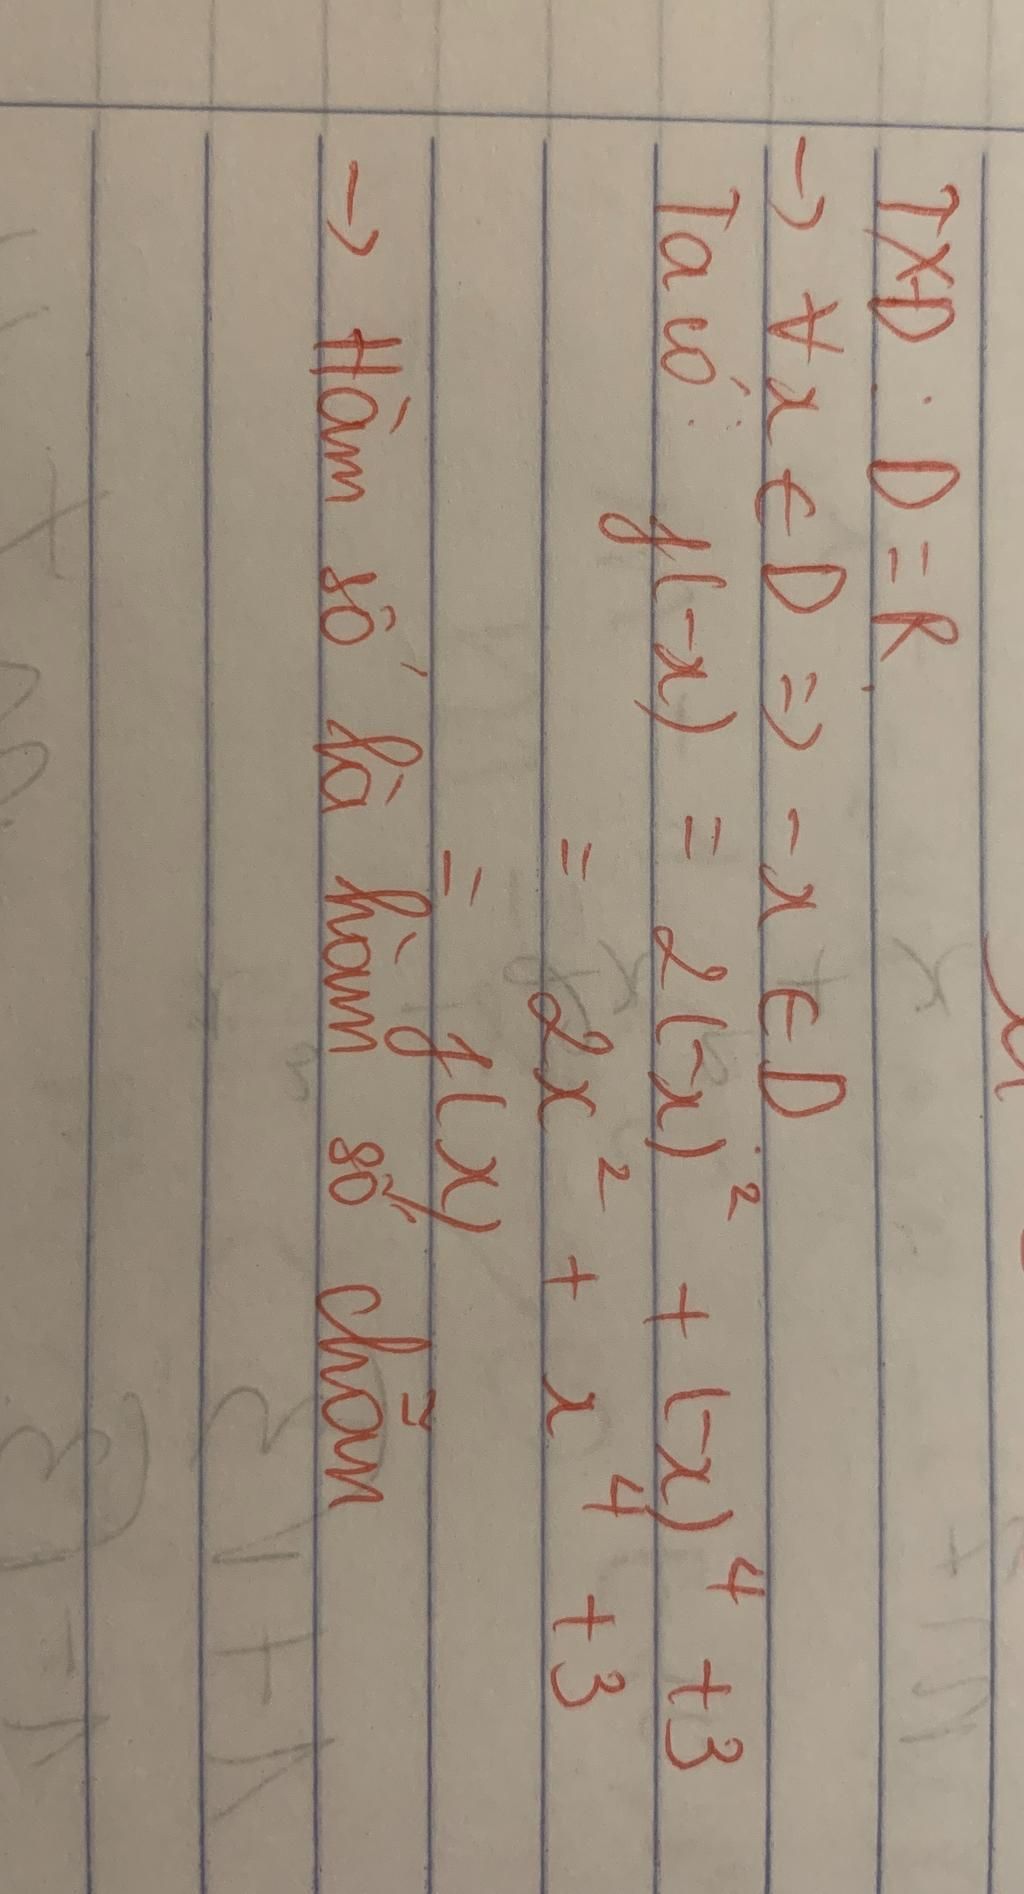 TXĐ: D = R
→ ∀x ∈ D => -x ∈ D
Ta có: f(-x) = 2(-x)² + (-x)⁴ + 3
= 2x² + x⁴ + 3
= f(x)
→ Hàm số là hàm số chẵn